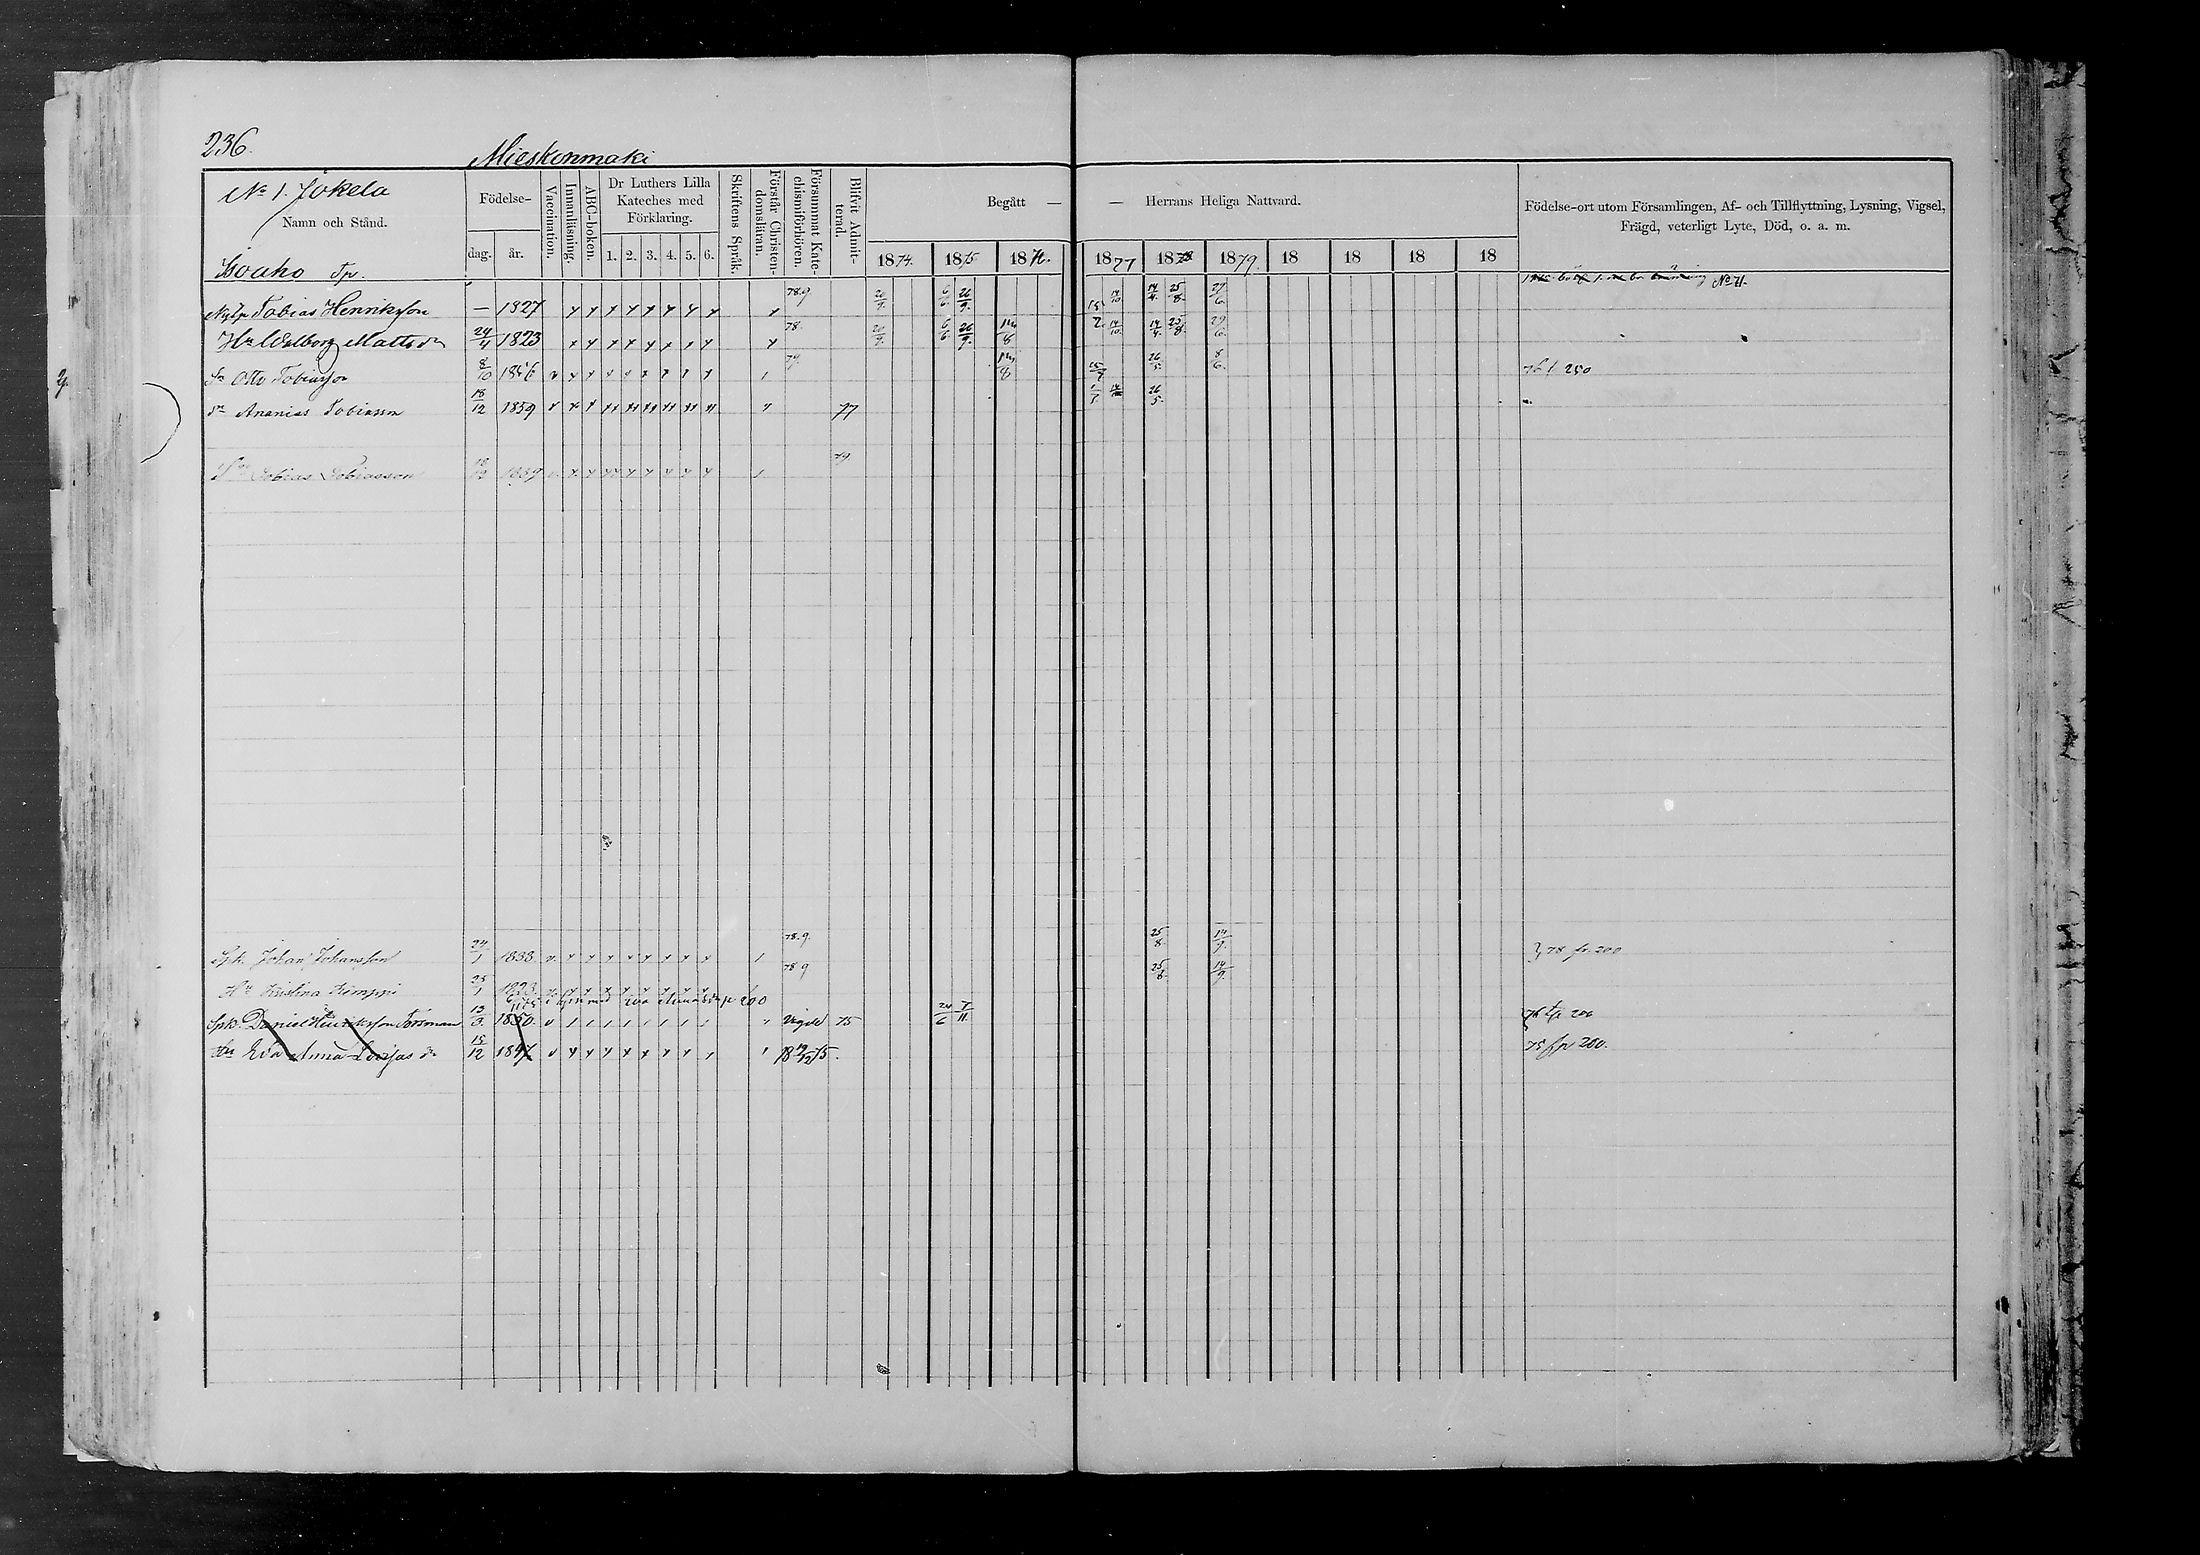 236.
Mieskonmäki
No 1. Jokela
Namn och Stånd.
Födelse-
dag.
år.
Vaccination.
Innanläsning.
ABC-boken.
Dr Luthers Lilla Kateches med Förklaring.
1. 2. 3. 4. 5. 6.
Skriftens Språk.
Förstår Christendomsläran.
Försummat Katechismiförhören.
Blifvit Admitterad.
Begått — — Herrans Heliga Nattvard.
1874. 1875 187 1877 1878 1879. 18 18 18 18
Födelse-ort utom Församlingen, Af- och Tillflyttning, Lysning, Vigsel, Frägd, veterligt Lyte, Död, o. a. m.
Isoaho Tp.
Tobias Henriksson — 1827 78.9 20/9. 6/6. 26/9. 14/10 14/4. 25/8. 29/6. No 71.
Hu Walborg Mattsdr 24/4 1823 78. 20/9. 6/6. 26/9. 14/10 14/4. 25/8. 29/6.
Sn Otto Tobiasson 8/10 1856 26/5. 8/6. 76 f 250
Sn Ananias Tobiasson 18/12 1859 77 26/5.
Sn Tobias Tobiasson 18/12 1859 79.
Spk Johan Johansson 24/1 1833. 78.9. 25/8. 14/9. 78 fr 200
Hu Kristina Kimppi 25/1 1823. 78 9 25/8. 14/9.
Spk. Daniel Henriksson Forsman 13/3. 1850. Vigde 75 24/6 7/11. 76 fp 200
Hu Eva Anna Lovisas dr 15/12 1847 18 19/12 75. 75 fp 200.